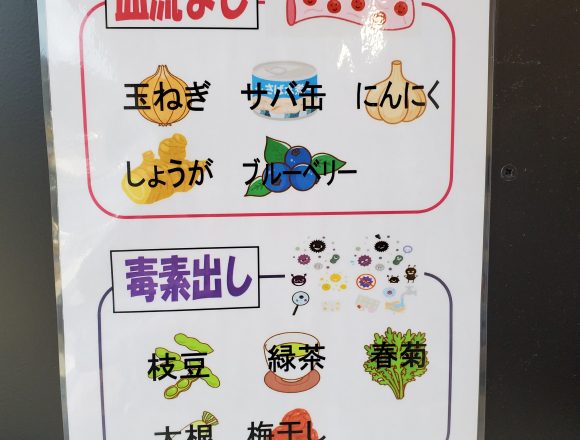 血流よし
玉ねぎ サバ缶 にんにく
しょうが ブルーベリー
毒素出し
枝豆 緑茶 春菊
大根 梅干し